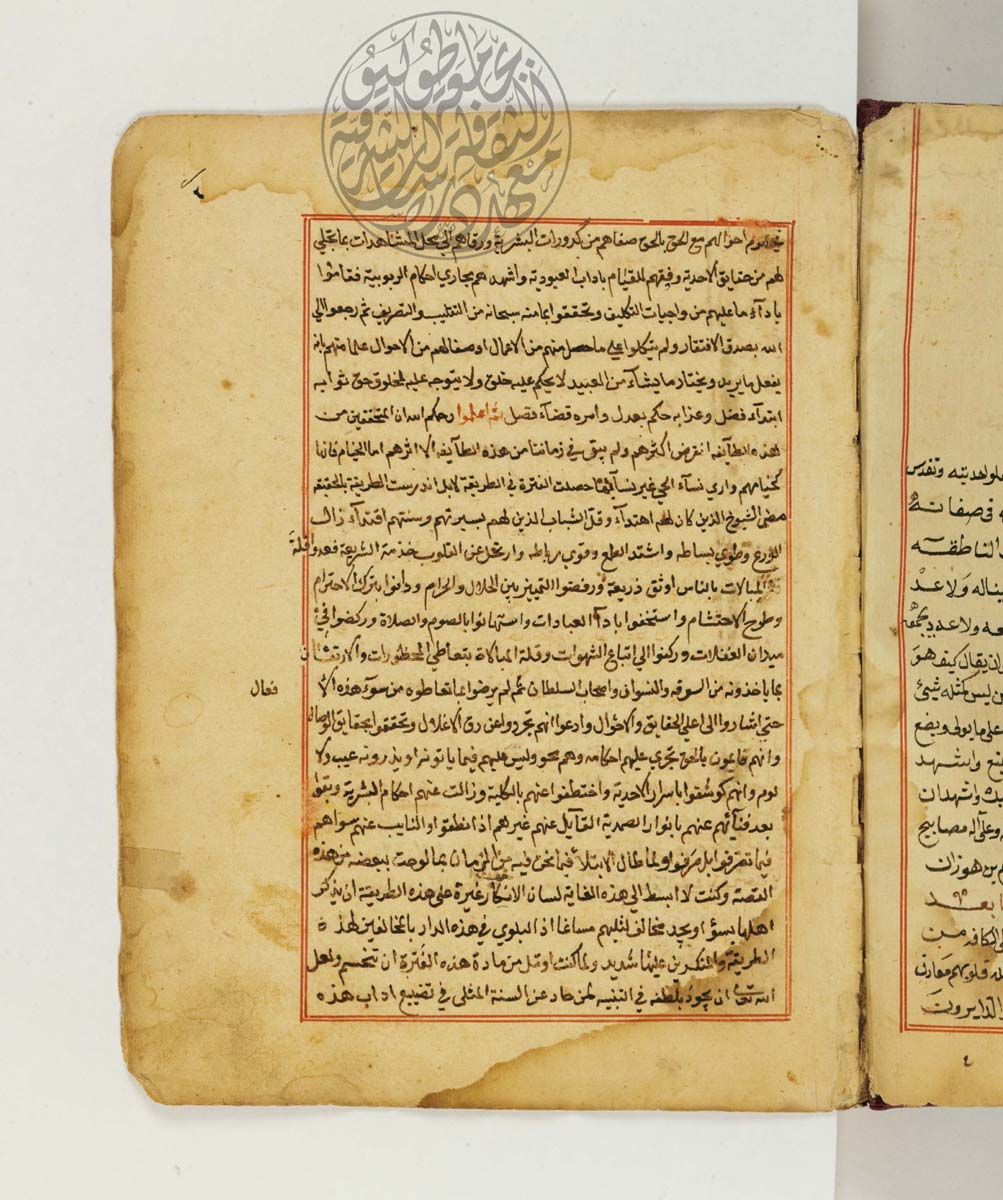 في عموم احوالهم مع الحق بالحق صفاهم من كدورات البشرية ورقاهم الي محل المشاهدات بما تجلي
لهم من حقايق الاحدية وفقهم للقيام باداب العبودية واشهدهم مجاري احكام الربوبية فقاموا
بادآء ما عليهم من واجبات التكليف وتحققوا بما منه سبحانه من التقليب والتصريف ثم رجعوا الي
الله بصدق الافتقار ولم يتكلوا علي ما حصل منهم من الاعمال او صفا لهم من الاحوال علما منهم بانه
يفعل ما يريد ويختار ما يشآء من العبيد لا يحكم عليه خلق ولا يتوجه عليه لمخلوق حق ثوابه
ابتدآء فضل وعذابه حكم بعدل وامره قضآء فصل ثم اعلموا رحمكم الله ان المحققين من
هذه الطآيفه انقرض اكثرهم ولم يبق في زماننا من هذه الطآيفه الا اثرهم اما الخيام فانها
كخيامهم واري نسآء الحي غير نسآئها حصلت الفترة في الطريقة لا بل اندرست الطريقة بالحقيقه
مضي الشيوخ الذين كان لهم اهتدآء وقل الشباب الذين لهم بسيرتهم وسنتهم اقتدآء زال
الورع وطوي بساطه واشتد الطمع وقوي رباطه وارتحل عن القلوب حرمة الشريعة فعدوا قلة
المبالات بالناس اوثق ذريعة ورفضوا التمييز بين الحلال والحرام ودانوا بترك الاحترام
وطرح الاحتشام واستخفوا بادآ العبادات واستهانوا بالصوم والصلاة وركضوا في
ميدان الغفلات وركنوا الي اتباع الشهوات وقلة المبالاة بتعاطي المحظورات والارتفاق
بما ياخذونه من السوقه والنسوان واصحاب السلطان ثم لم يرضوا بما تعاطوه من سوء هذه الا
فعال
حتي اشاروا الي اعلي الحقايق والاحوال وادعوا انهم تحرروا عن رق الاغلال وتحققوا بحقايق الوصال
وانهم قايمون بالحق تجري عليهم احكامه وهم محو وليس عليهم فيما ياتونه او يذرونه عيب ولا
لوم وانهم كوشفوا باسرار الاحدية واختطفوا عنهم بالكلية وزالت عنهم احكام البشرية وبقوا
بعد فنآئهم عنهم بانوار الصمدية القآيل عنهم غيرهم اذا نطقوا والنايب عنهم سواهم
فيما تصرفوا بل صرفوا ولما طال الابتلاء فيما نحن فيه من الزمان بما لوحت ببعضه من هذه
القصة وكنت لا ابسط الي هذه الغاية لسان الانكار غيرة علي هذه الطريقة ان يذكر
اهلها بسوء او يجد مخالف لثلبهم مساغا اذ البلوي في هذه الدار بالمخالفين لهذه
الطريقة والمنكرين عليها شديد ولما كنت اومل من مادة هذه الفترة ان تنحسم ولعل
الله تعالي ان يجود بلطفه في التنبيه لمن حاد عن السنة المثلي في تضييع اداب هذه
وتقدس
في صفاته
الناطقه
ولا عد
كيف هو
ليس كمثله شئ
علي ما يولي ويضع
واشهد
واشهد ان
وعلي آله مصابيح
بن هوزان
بعد
الكافه من